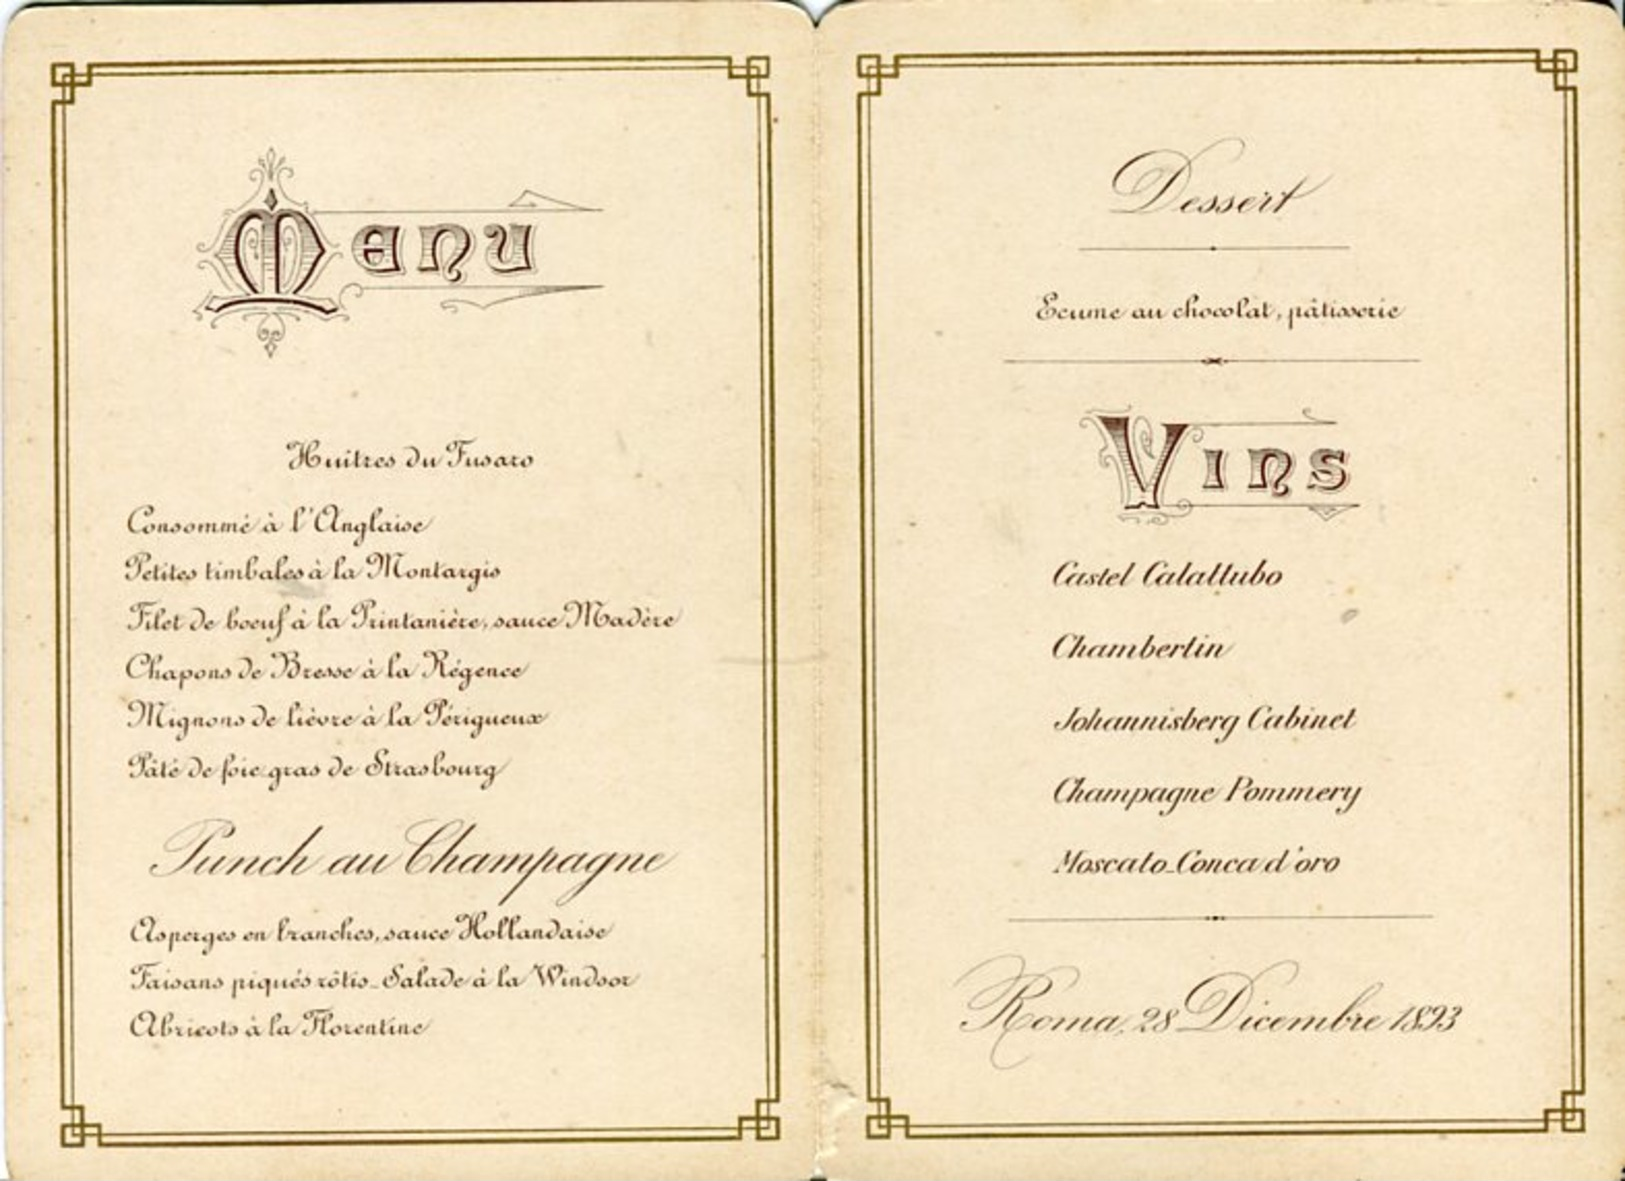 Menu
Huîtres du Fusaro
Consommé à l'Anglaise
Petites timbales à la Montargis
Filet de boeuf à la Printanière, sauce Madère
Chapons de Bresse à la Régence
Mignons de lièvre à la Périgueux
Pâté de foie gras de Strasbourg
Punch au Champagne
Asperges en branches, sauce Hollandaise
Faisans piqués rôtis_Salade à la Windsor
Abricots à la Florentine
Dessert
Ecume au chocolat, pâtisserie
Vins
Castel Calattubo
Chambertin
Johannisberg Cabinet
Champagne Pommery
Moscato_Conca d'oro
Roma, 28 Dicembre 1893